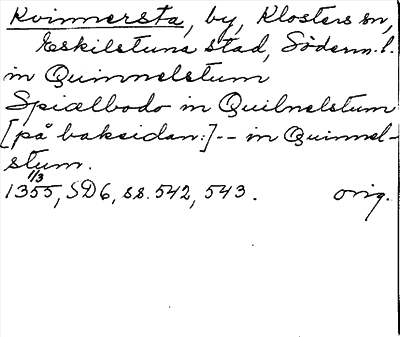 Kvinnersta, by, Klosters sn,
Eskilstuna stad, Söderm.l.
in Quinnelstum
Spiælbodo in Quilnelstum
[på baksidan:] -- in Quinnel-
stum.
1/3
1355, SD6, ss. 542, 543. orig.